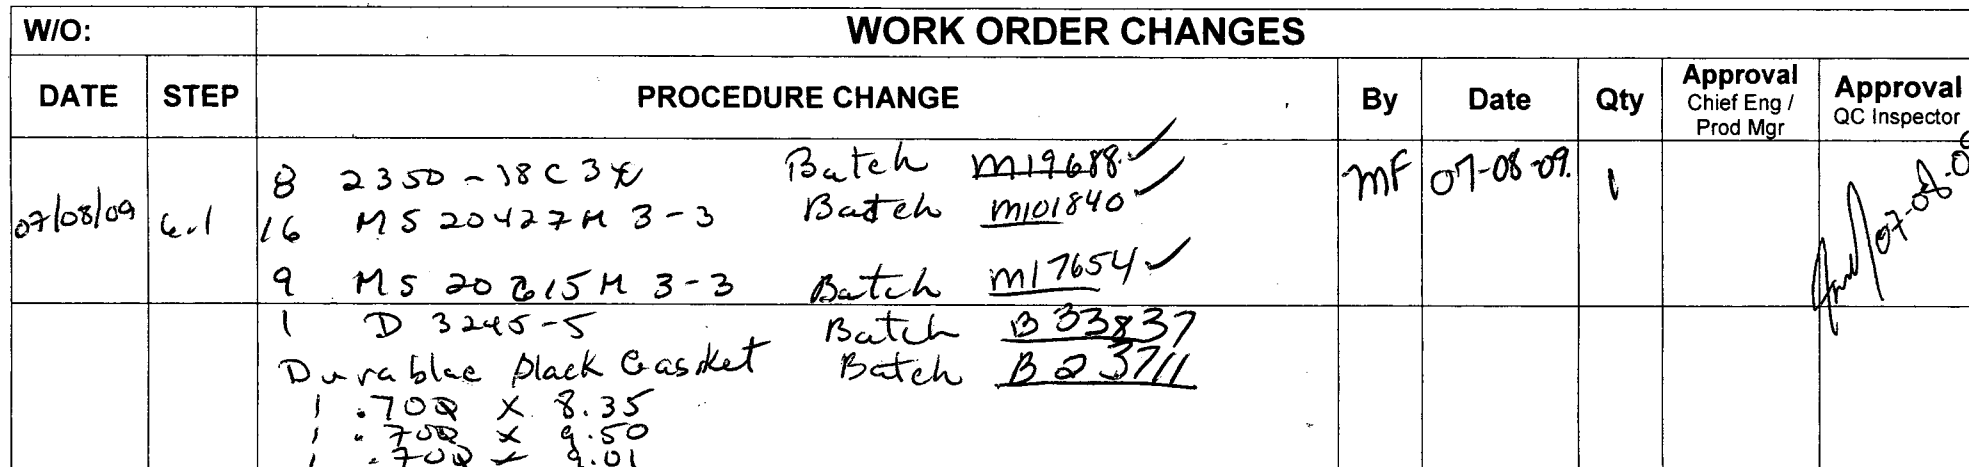 W/O: WORK ORDER CHANGES
DATE STEP PROCEDURE CHANGE By Date Qty Approval Chief Eng / Prod Mgr Approval QC Inspector
8 2350-18C3 Batch M19688 ✓ MF 07-08-09. 1
07/08/09 6.1 16 MS 20427M 3-3 Batch M101840 ✓ 07-08-0
9 MS 20615M 3-3 Batch M17654 ✓
1 D 3245-5 Batch B 33837
Durablac black Gasket Batch B 23711
1 .700 X 8.35
1 .700 X 9.50
1 .700 X 9.01